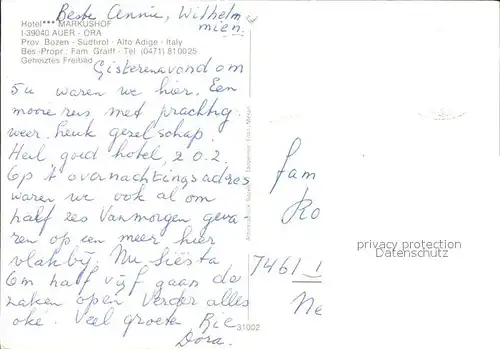 Beste Annie, Wilhelm
mien.
Hotel*** MARKUSHOF
I-39040 AUER - ORA
Prov. Bozen - Südtirol - Alto Adige - Italy
Bes.-Propr.: Fam. Graiff - Tel. (0471) 810025
Geheiztes Freibad
Gisterenavond om
5u waren we hier. Een
mooie reis met prachtig
weer. leuk gezelschap.
Heel goed hotel, z.o.z.
Op 't overnachtingsadres
waren we ook al om
half zes Vanmorgen geva-
ren op een meer hier
vlakbij. Nu siësta
Om half vijf gaan de
zaken open Verder alles
oké. Veel groeten Rie
Dora.
31002
fam
Ko
7461
Ne
privacy protection
Datenschutz